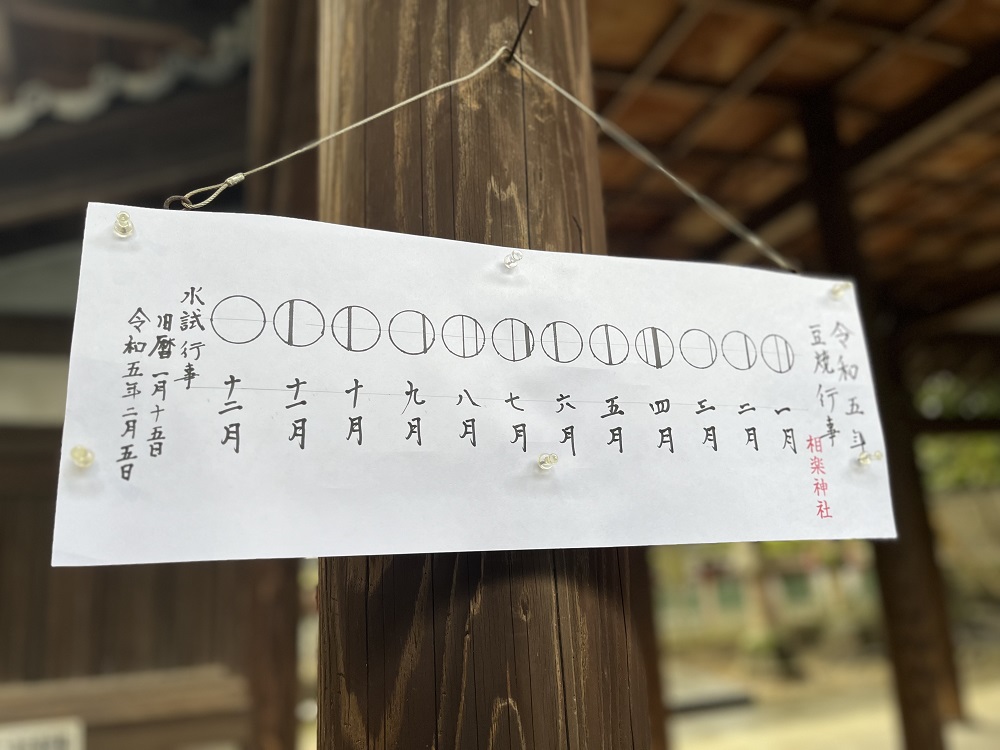 令和五年
豆焼行事
相楽神社
一月
二月
三月
四月
五月
六月
七月
八月
九月
十月
十一月
十二月
水試行事
旧暦一月十五日
令和五年二月五日